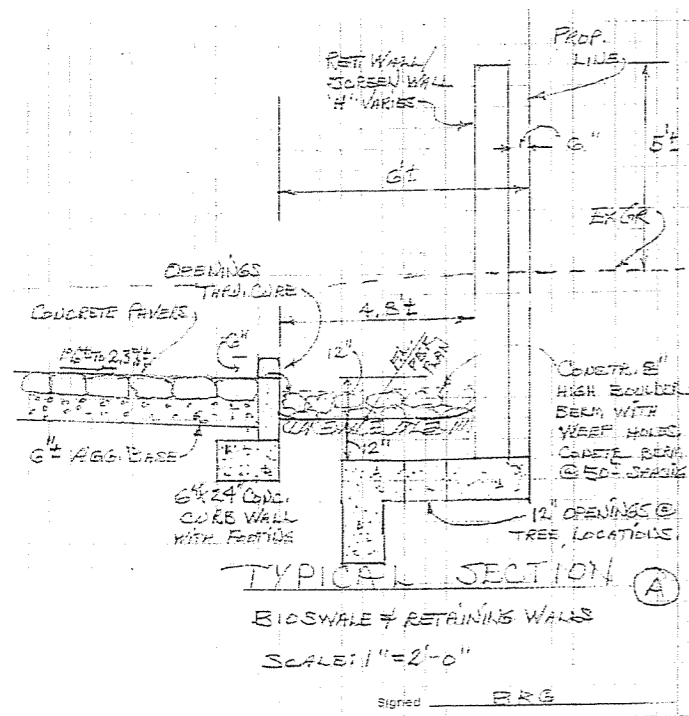 RET. WALL/
SCREEN WALL
"H" VARIES
PROP.
LINE
6"
5'±
6'±
EX GR
OPENINGS
THRU. CURB
CONCRETE PAVERS
4.8'±
6"
12"
CONSTR. 8"
HIGH BOULDER
BERM WITH
WEEP HOLES.
BERM
@ 50'± SPACING
6"± AGG. BASE
12"
6"x24" CONC.
CURB WALL
WITH FOOTING
12" OPENINGS @
TREE LOCATIONS.
TYPICAL SECTION
A
BIOSWALE & RETAINING WALLS
SCALE: 1"=2'-0"
Signed BRG